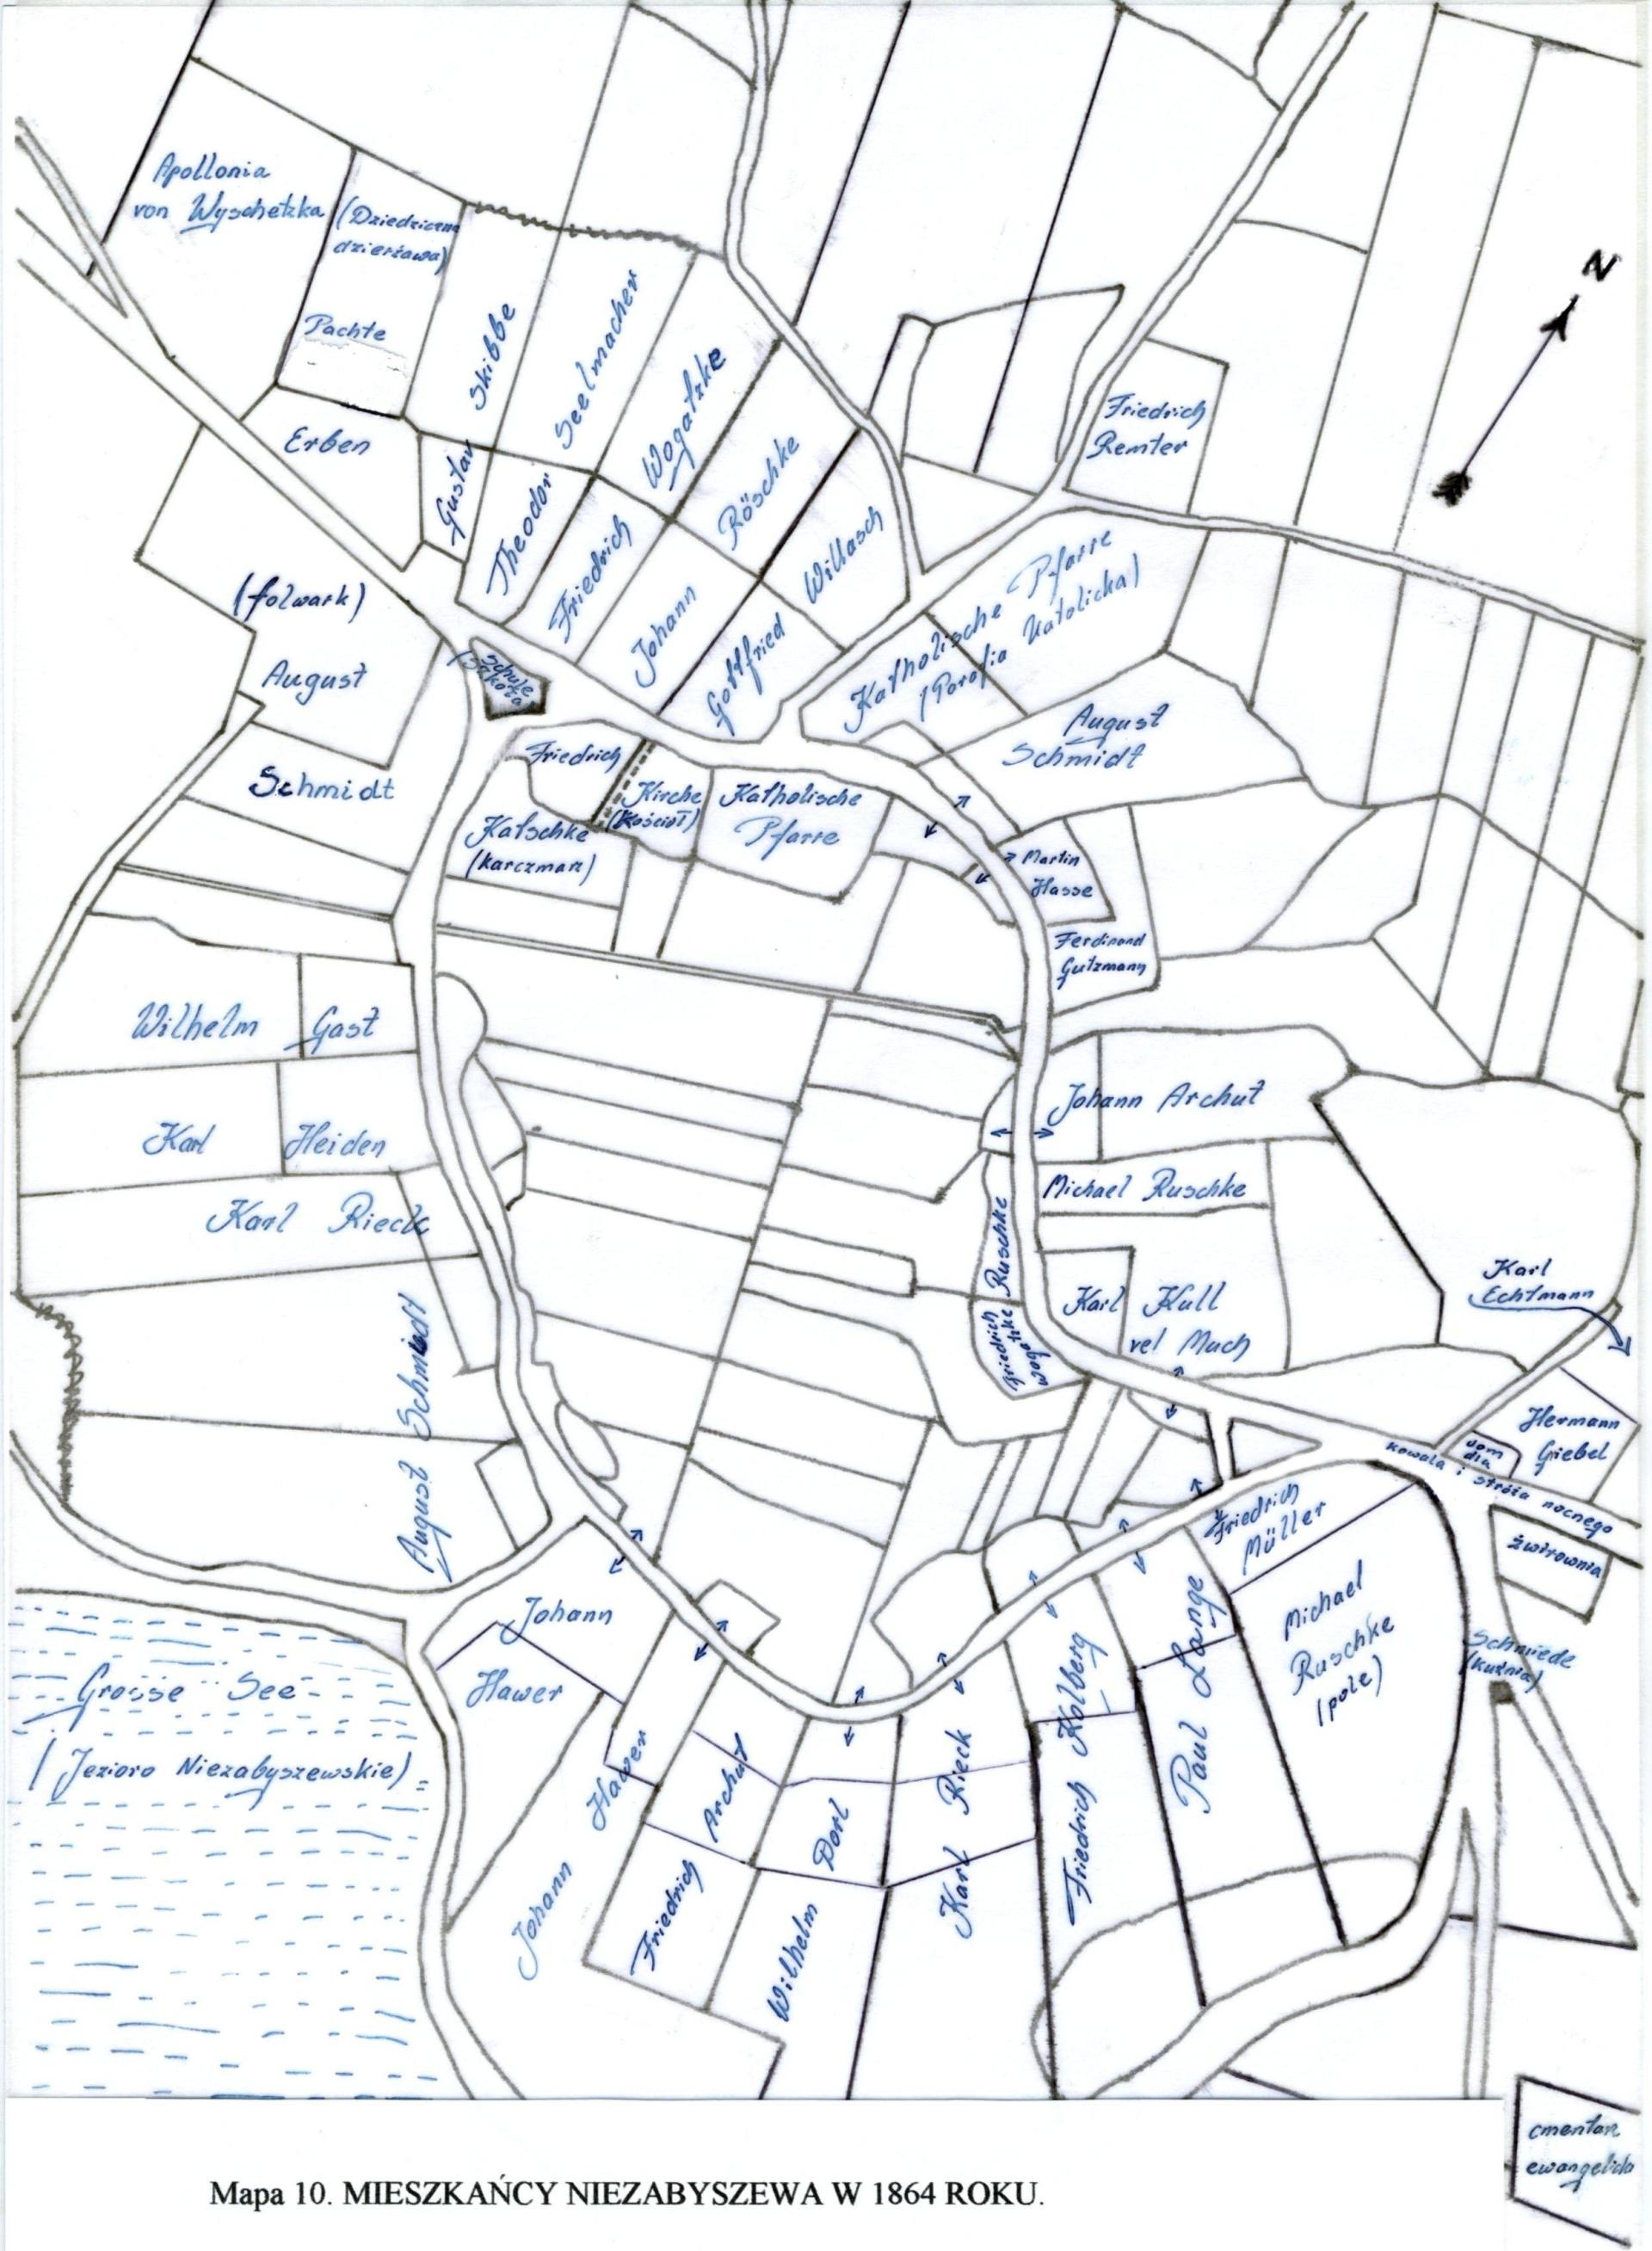 Apollonia
von Wyschetzka
(Dziedziczna
dzierżawa)
Pachte
Erben
Gustav Skibbe
Theodor Seelmacher
Friedrich Wogatzke
Johann Röschke
Gottfried Willasch
Friedrich
Remter
N
Katholische Pfarre
(Parafia Katolicka)
(folwark)
August
Schmidt
(Schule
Szkoła)
August
Schmidt
Friedrich
Katschke
(karczmarz)
Kirche
(Kościół)
Katholische
Pfarre
Martin
Hasse
Ferdinand
Gutzmann
Wilhelm Gast
Johann Archut
Karl Heiden
Michael Ruschke
Karl Rieck
Ruschke
Friedrich
Wogatzke
Karl Kull
vel Much
Karl
Echtmann
August Schmidt
Hermann
Giebel
dom
dla
kowala i stróża nocnego
Friedrich
Müller
żwirownia
Johann
Hawer
Michael
Ruschke
(pole)
Schmiede
(kuźnia)
Grosse See
(Jezioro Niezabyszewskie)
Johann Hawer
Friedrich Archut
Wilhelm Dorl
Karl Rieck
Friedrich Kolberg
Paul Lange
cmentarz
ewangelicki
Mapa 10. MIESZKAŃCY NIEZABYSZEWA W 1864 ROKU.